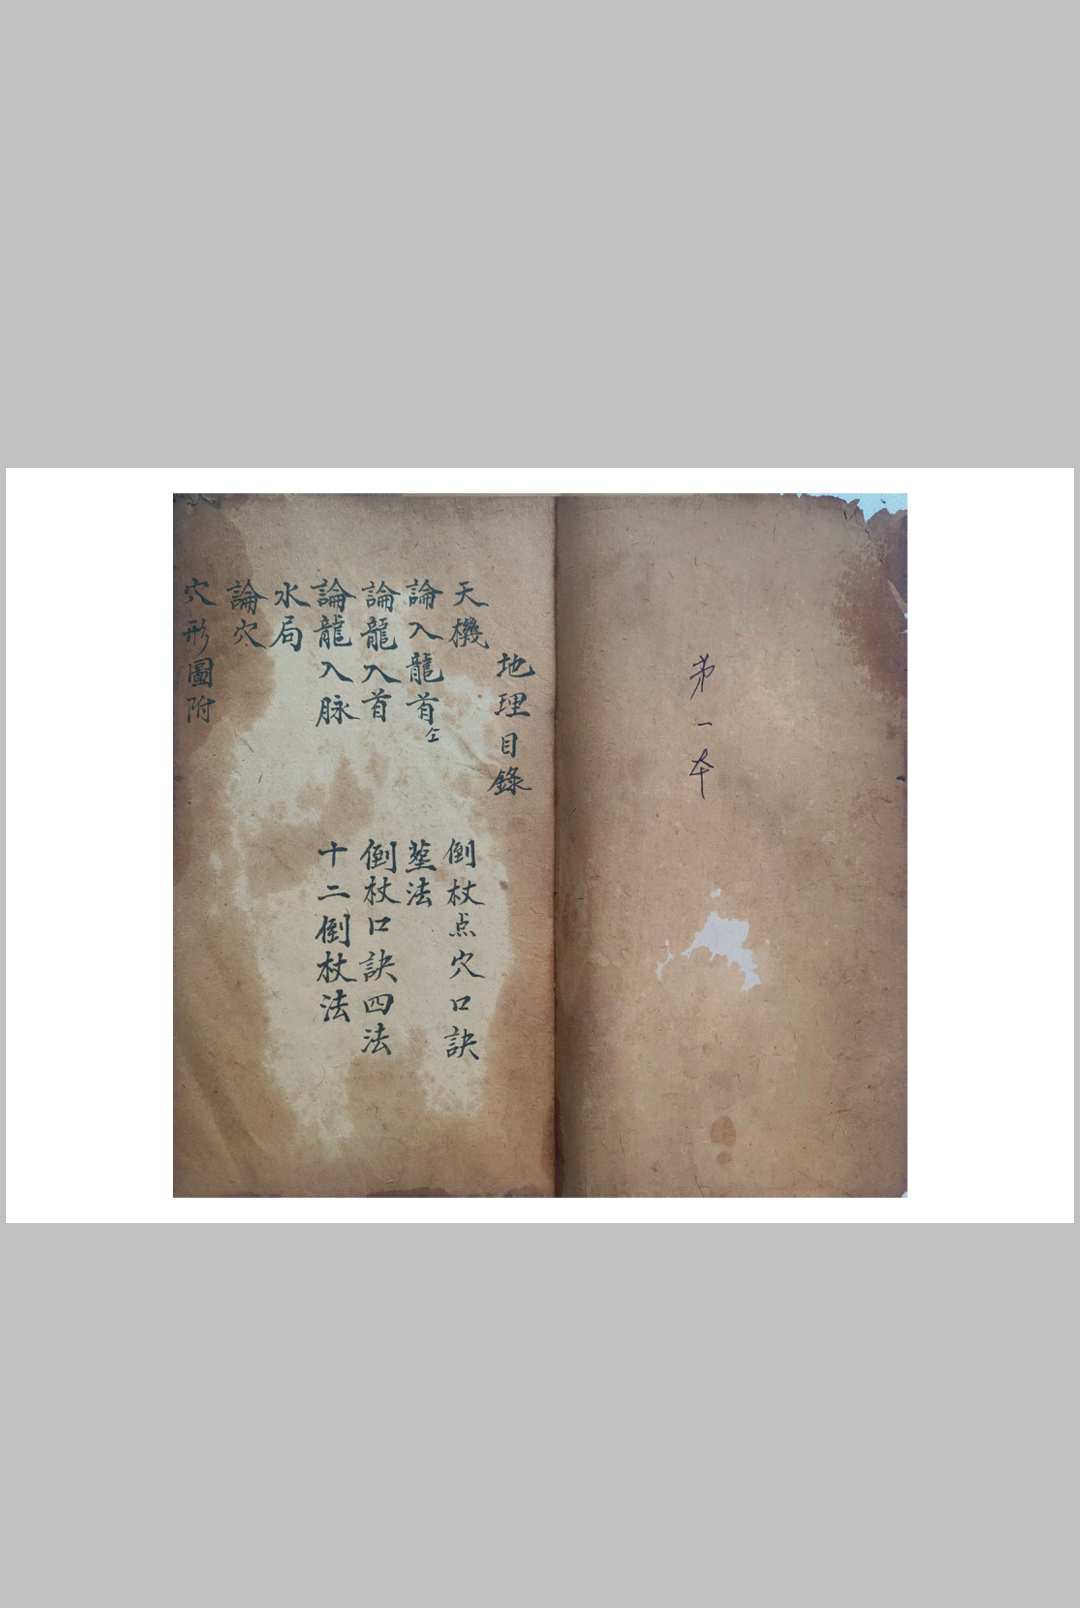 第一本
地理目錄
天機
倒杖点穴口訣
論入龍首仝
塟法
論龍入首
倒杖口訣四法
論龍入脉
十二倒杖法
水局
論穴
穴形圖附